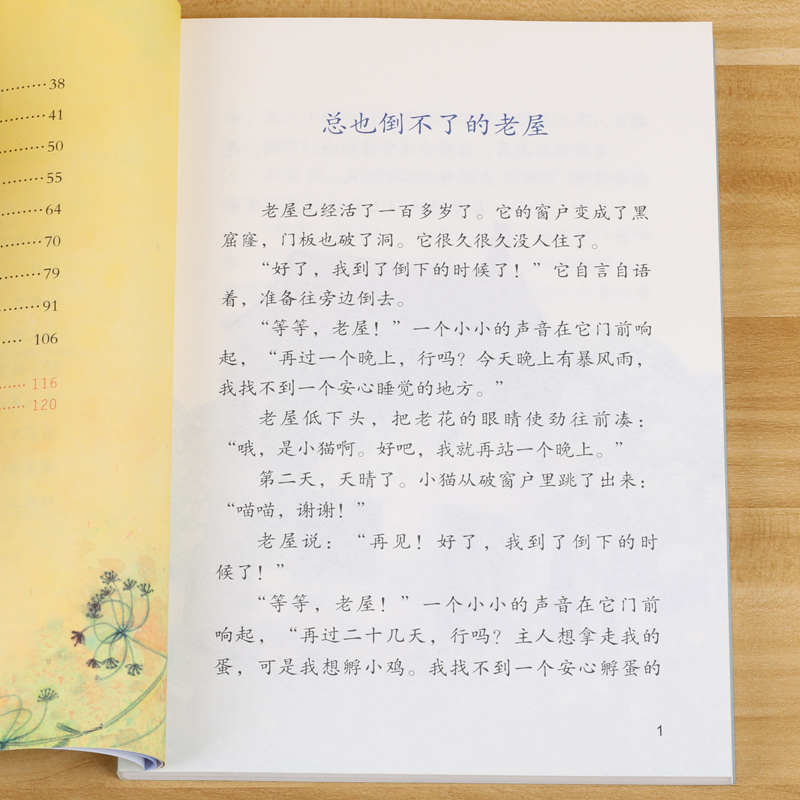 38
41
50
55
64
70
79
91
106
116
120
总也倒不了的老屋
老屋已经活了一百多岁了。它的窗户变成了黑
窟窿，门板也破了洞。它很久很久没人住了。
“好了，我到了倒下的时候了！”它自言自语
着，准备往旁边倒去。
“等等，老屋！”一个小小的声音在它门前响
起，“再过一个晚上，行吗？今天晚上有暴风雨，
我找不到一个安心睡觉的地方。”
老屋低下头，把老花的眼睛使劲往前凑：
“哦，是小猫啊。好吧，我就再站一个晚上。”
第二天，天晴了。小猫从破窗户里跳了出来：
“喵喵，谢谢！”
老屋说：“再见！好了，我到了倒下的时
候了！”
“等等，老屋！”一个小小的声音在它门前
响起，“再过二十几天，行吗？主人想拿走我的
蛋，可是我想孵小鸡。我找不到一个安心孵蛋的
1